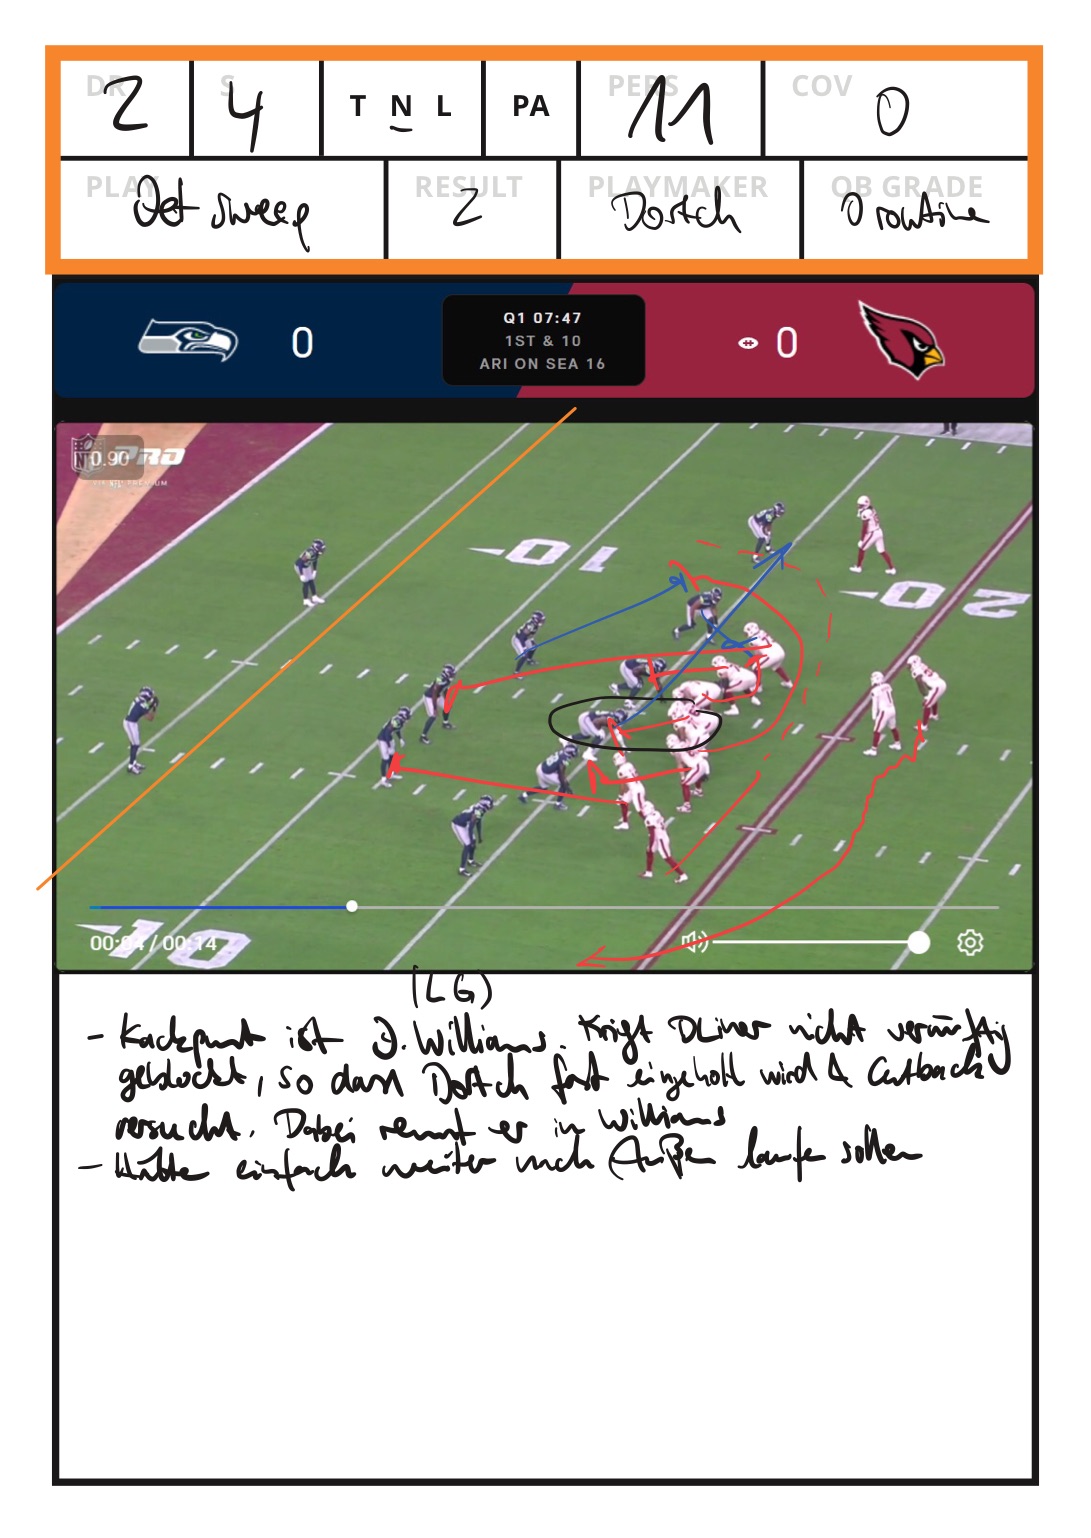 DR 2 S 4 T N L PA PERS 11 COV 0
PLAY Jet sweep RESULT 2 PLAYMAKER Dortch QB GRADE 0 routine
0 Q1 07:47 0
1ST & 10
ARI ON SEA 16
NFL PRO
0.90
10
20
10
00:04 / 00:14
(LG)
- Knackpunkt ist J. Williams. Kriegt DLiner nicht vernünftig
geblockt, so dass Dortch fast eingeholt wird & Cutback
versucht. Dabei rennt er in Williams
- Hätte einfach weiter nach Außen laufen sollen